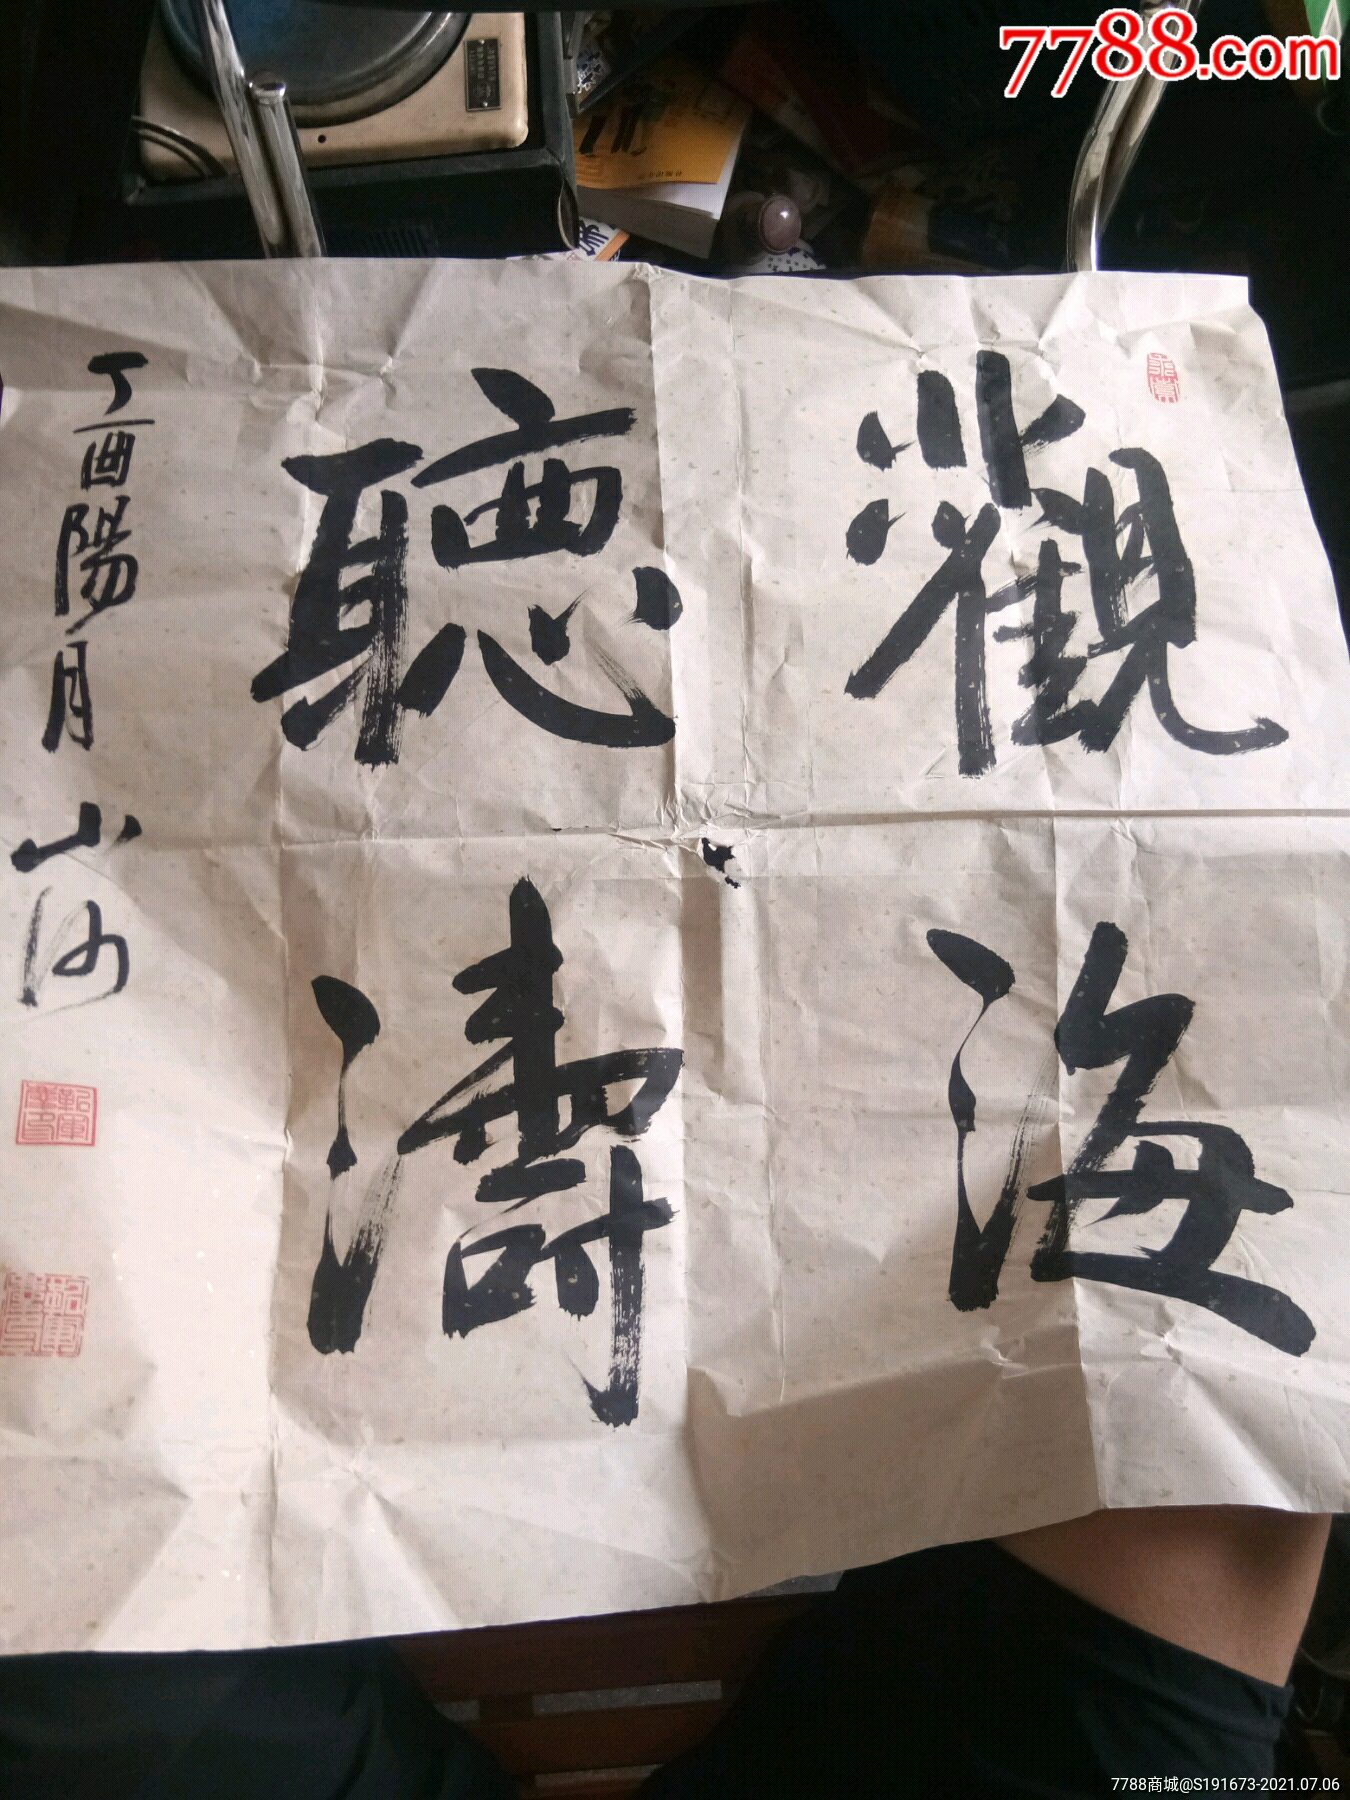 7788.com
觀海
聽濤
丁酉陽月 山河
7788商城@S191673-2021.07.06